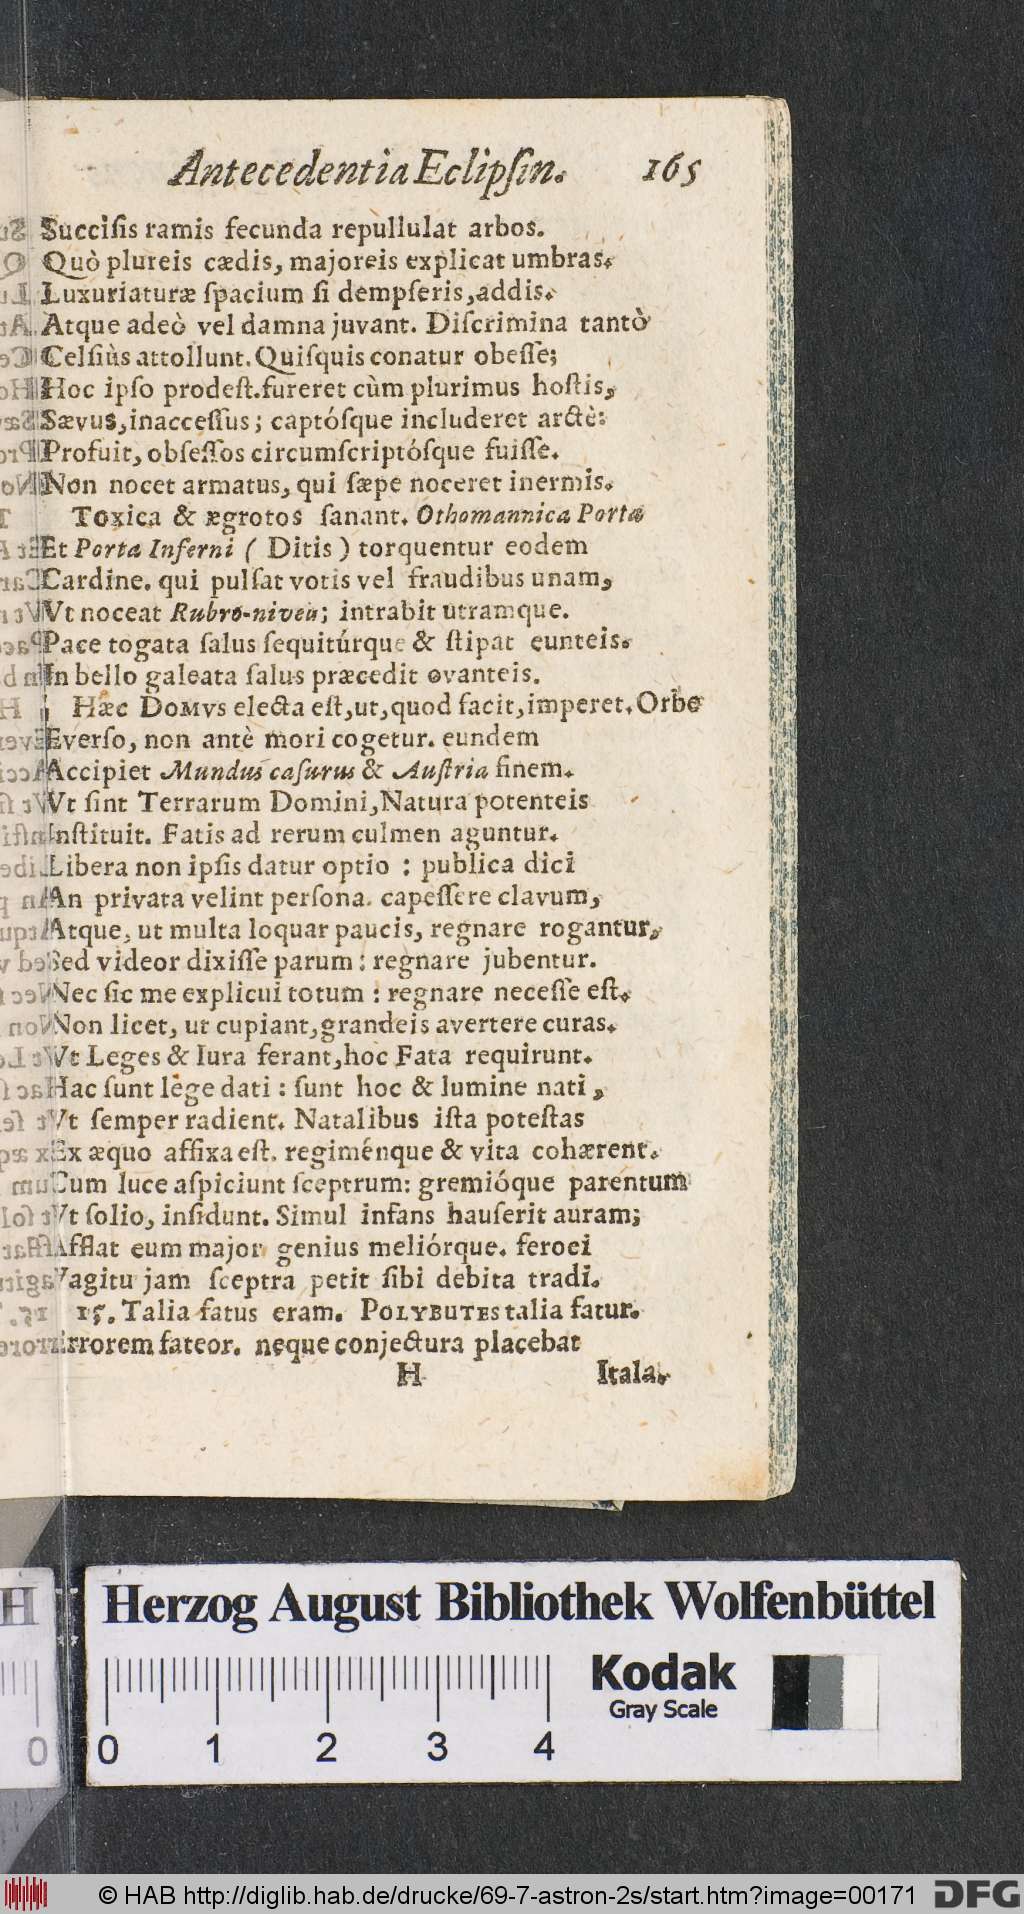 Antecedentia Eclipſin. 165
Succiſis ramis fecunda repullulat arbos.
Quò plureis cædis, majoreis explicat umbras.
Luxuriaturæ ſpacium ſi dempſeris, addis.
Atque adeò vel damna juvant. Diſcrimina tantò
Celſiùs attollunt. Quiſquis conatur obeſſe;
Hoc ipſo prodeſt. fureret cùm plurimus hoſtis,
Sævus, inacceſſus; captóſque includeret arctè:
Profuit, obſeſſos circumſcriptóſque fuiſſe.
Non nocet armatus, qui ſæpe noceret inermis.
Toxica & ægrotos ſanant. Othomannica Porta
Et Porta Inferni ( Ditis ) torquentur eodem
Cardine. qui pulſat votis vel fraudibus unam,
Vt noceat Rubro-niveæ; intrabit utramque.
Pace togata ſalus ſequitúrque & ſtipat eunteis.
In bello galeata ſalus præcedit ovanteis.
Hæc DOMVS electa eſt, ut, quod facit, imperet. Orbe
Everſo, non antè mori cogetur. eundem
Accipiet Mundus caſurus & Auſtria finem.
Vt ſint Terrarum Domini, Natura potenteis
Inſtituit. Fatis ad rerum culmen aguntur.
Libera non ipſis datur optio : publica dici
An privata velint perſona. capeſſere clavum,
Atque, ut multa loquar paucis, regnare rogantur,
Sed videor dixiſſe parum : regnare jubentur.
Nec ſic me explicui totum : regnare neceſſe eſt.
Non licet, ut cupiant, grandeis avertere curas.
Vt Leges & Iura ferant, hoc Fata requirunt.
Hac ſunt lege dati : ſunt hoc & lumine nati,
Vt ſemper radient. Natalibus iſta poteſtas
Ex æquo affixa eſt. regiménque & vita cohærent.
Cum luce aſpiciunt ſceptrum: gremióque parentum
Vt ſolio, inſidunt. Simul infans hauſerit auram;
Afflat eum major genius meliórque. feroci
Vagitu jam ſceptra petit ſibi debita tradi.
15. Talia fatus eram. POLYBUTES talia fatur.
Errorem fateor. neque conjectura placebat
H Itala.
Herzog August Bibliothek Wolfenbüttel
Kodak
Gray Scale
0 1 2 3 4
© HAB http://diglib.hab.de/drucke/69-7-astron-2s/start.htm?image=00171 DFG